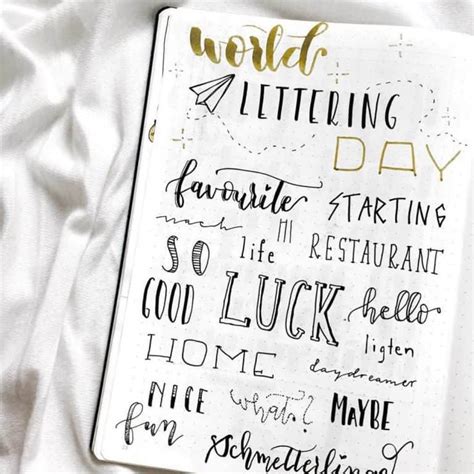 world
LETTERING
DAY
favourite STARTING
HI
SO life RESTAURANT
GOOD LUCK hello
ligten
HOME daydreamer
NICE what? MAYBE
fun Schmetterlinge